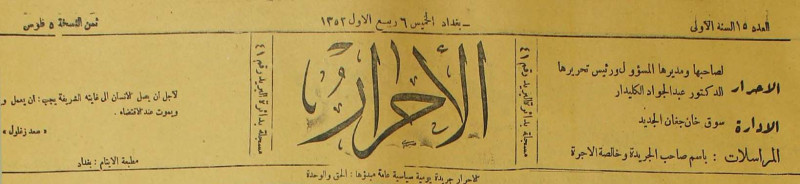 العدد ١٥ السنة الاولى
ـ بغداد الخميس ٦ ربيع الاول ١٣٥٢ ـ
ثمن النسخة ٥ فلوس
الاحرار
لصاحبها ومديرها المسؤول ورئيس تحريرها
الدكتور عبدالجواد الكليدار
الادارة سوق خان جغان الجديد
المراسلات : باسم صاحب الجريدة وخالصة الاجرة
مسجلة بدائرة البريد رقم ٤١
الأحرار
مسجلة بدائرة البريد رقم ٤١
لاجل ان يصل الانسان الى غايته الشريفة يجب : ان يعمل و
ويموت عند الاقتضاء .
« سعد زغلول »
مطبعة الايتام : بغداد
الاحرار جريدة يومية سياسية عامة مبدؤها : الحق والوحدة